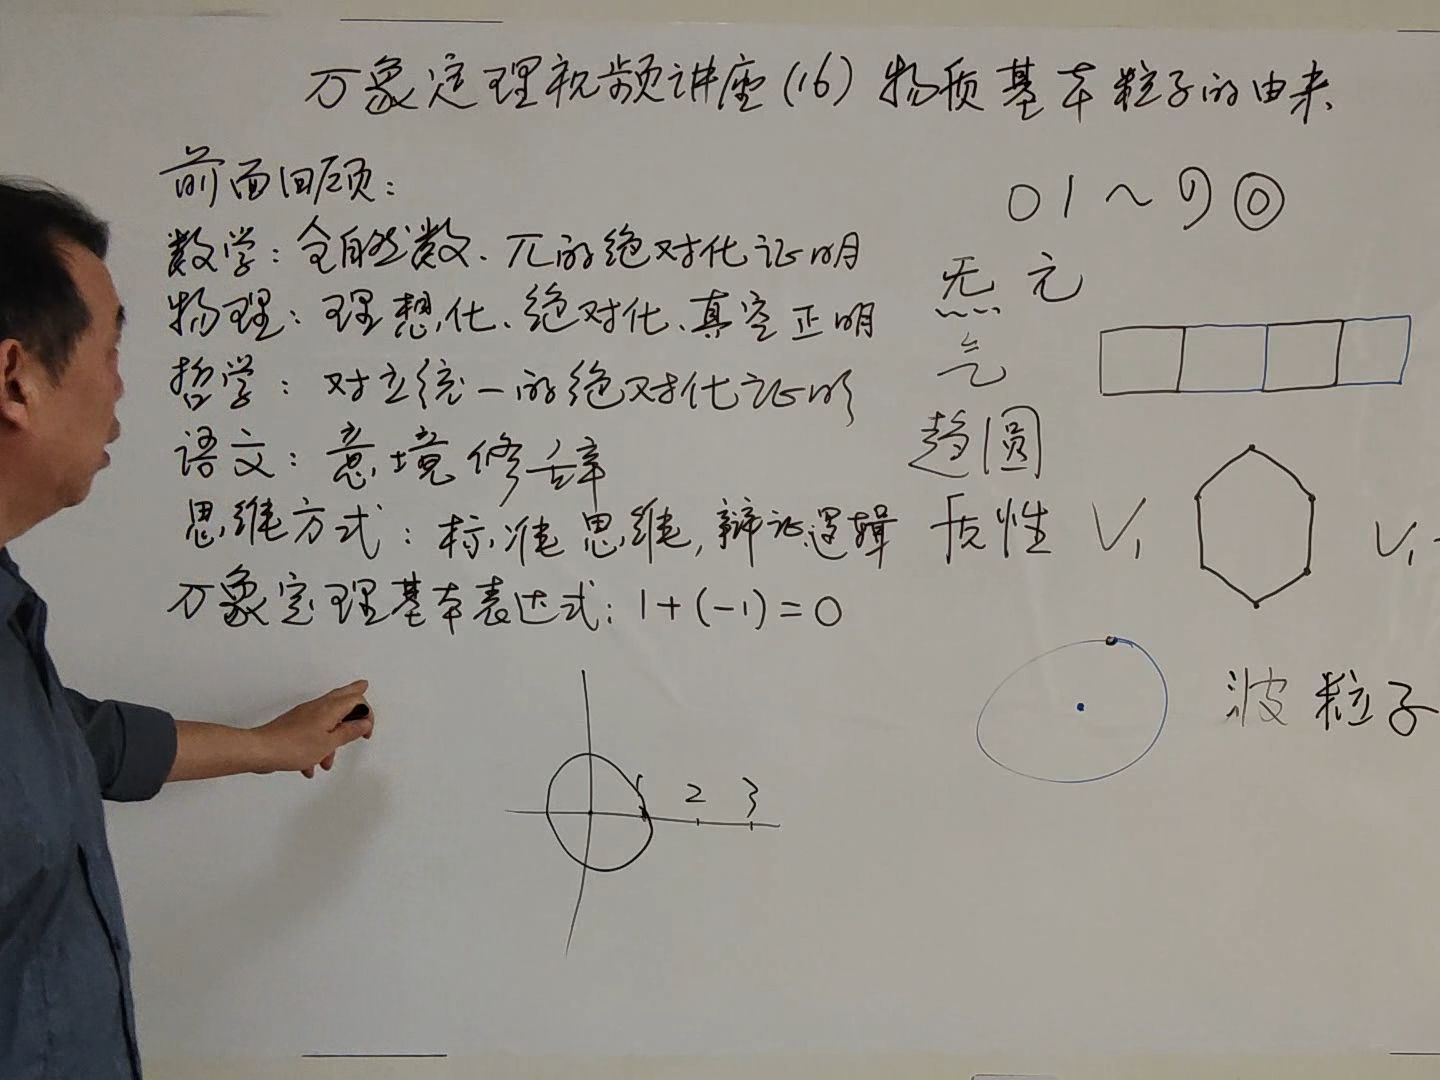 万象定理视频讲座(16)物质基本粒子的由来
前面回顾:
数学:全自然数、π的绝对化证明
物理:理想化、绝对化、真空正明
哲学:对立统一的绝对化证明
语文:意境修辞
思维方式:标准思维,辩证逻辑
万象定理基本表达式:1+(-1)=0
01~9◎
无 元
气
趋圆
质性 V₁ V₁
波粒子
1 2 3